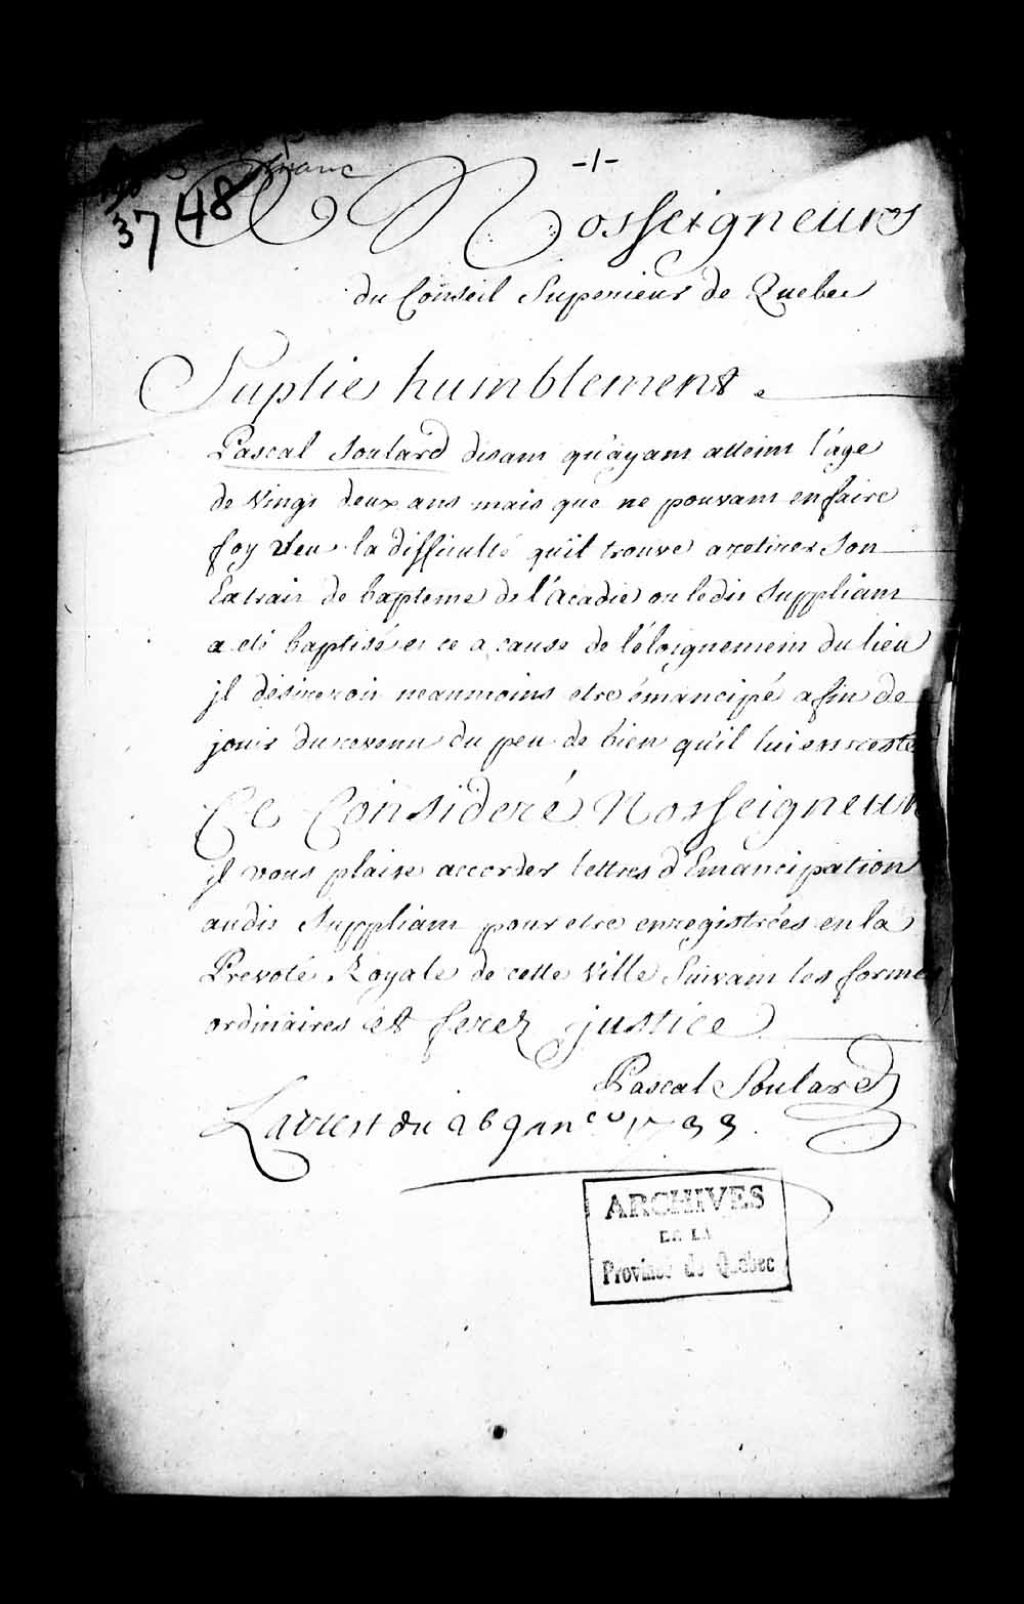 -1-
3748
A Nosseigneurs
du Conseil Superieur de Quebec
Suplie humblement
Pascal Soulard disant qu'ayant atteint l'age
de Vingt deux ans mais que ne pouvant en faire
foy veu la difficulté qu'il trouve a retirer Son
Extrait de bapteme de l'Acadie ou ledit Suppliant
a eté baptisé et ce a cause de l'éloignement du lieu
jl desireroit neanmoins etre émancipé afin de
jouir du revenu du peu de bien qu'il lui en reste
Ce Consideré Nosseigneurs
jl vous plaise accorder lettres d'Emancipation
audit Suppliant pour etre enregistrées en la
Prevoté Royale de cette Ville Suivant les formes
ordinaires et ferez justice
Pascal Soulard
L'arrest du 26 Janer 1733.
ARCHIVES
DE LA
Province de Quebec